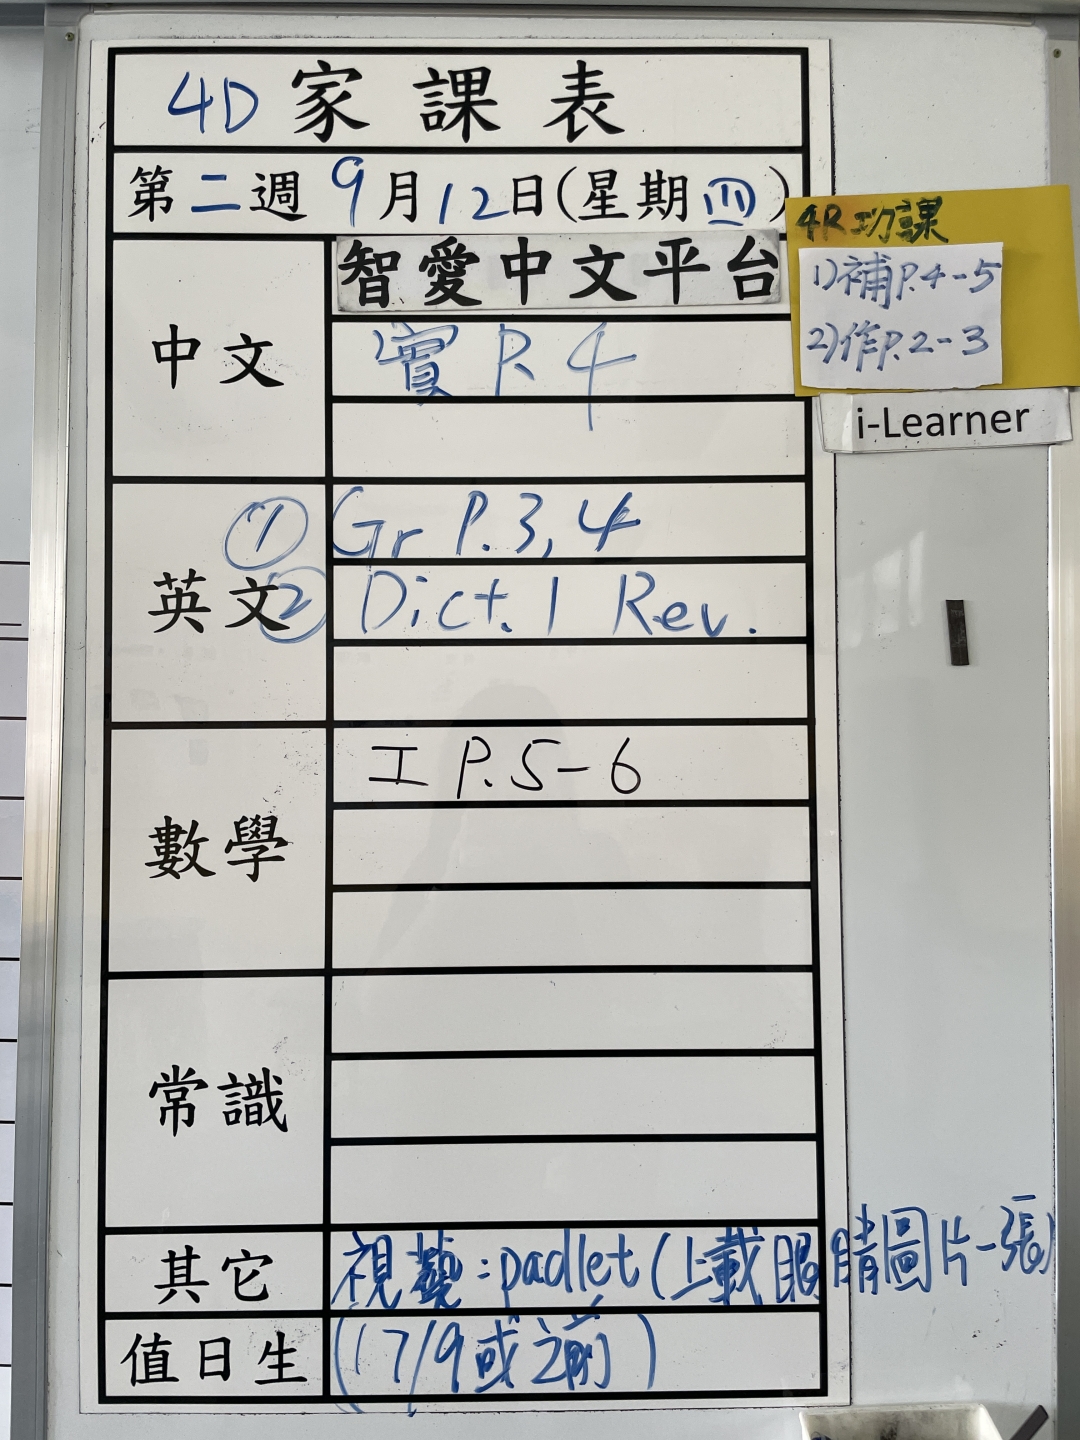 4D 家課表
第二週 9月12日(星期四)
4R功課
1)補P.4-5
2)作P.2-3
i-Learner
中文
智愛中文平台
實 P.4
英文
① Gr P.3,4
② Dict.1 Rev.
數學
工 P.5-6
常識
其它
視藝:padlet(上載眼睛圖片一張)
值日生
(17/9或之前)